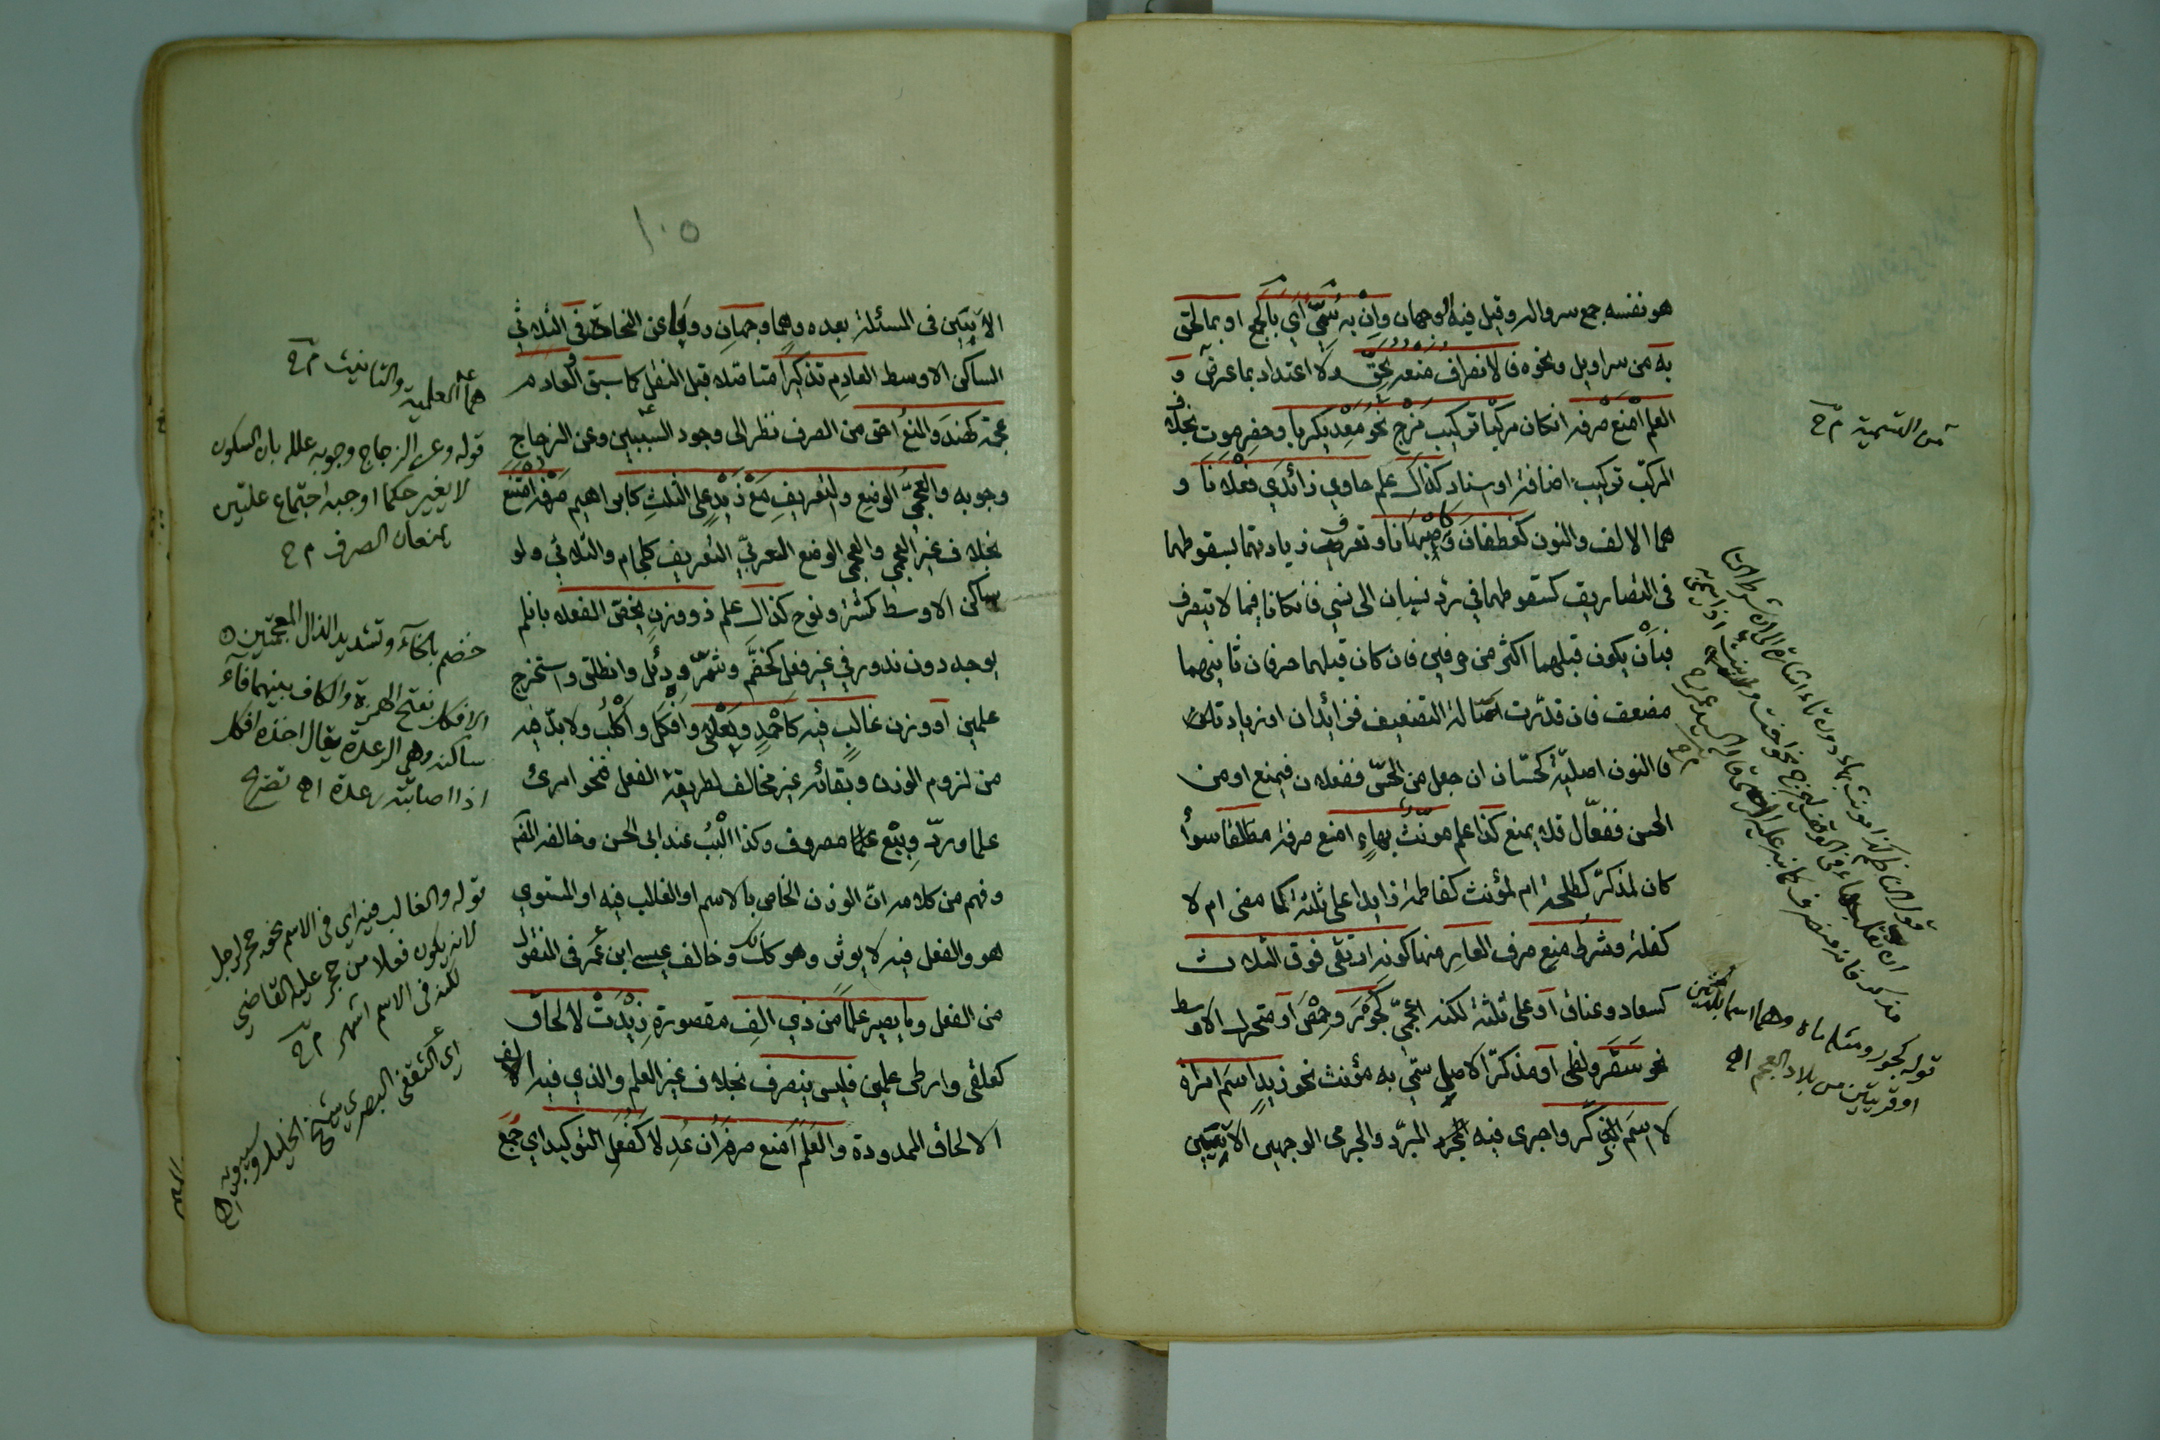 هو نفسه جمع سروالة وقيل فيه الوجهان وان به سُمِّيَ اي بالجمع او بما لحق
به من سراويل ونحوه فالانصراف منعه يحق ولا اعتداد بما عرض و
العلم امنع صرفه ان كان مركبا تركيب مزج نحو معديكربا وحضرموت بخلاف
المركب تركيب اضافة او اسناد كذاك علم حاوي زائدي فعلانا و
هما الالف والنون كغطفان وكاصبهانا وتعرف زيادتهما بسقوطهما
في التصاريف كسقوطهما في رد نسيان الى نسي فان كانا فيما لا يتصرف
فبأن يكون قبلهما اكثر من حرفين فان كان قبلهما حرفان ثانيهما
مضعف فان قدّرت اصالة التضعيف فزائدان او زيادته
فالنون اصلية كحسّان ان جعل من الحسّ ففعلان فيمنع او من
الحسن ففعّال فلا يمنع كذا علم مونّث بهاءٍ امنع صرفه مطلقا سوأ
كان لمذكر كطلحة ام لمؤنث كفاطمة زايدا على ثلثة كما مضى ام لا
كفلة وشرط منع صرف العار منها كونه ارتقى فوق الثلاث
كسعاد وعناق او على ثلثة لكنه اعجمي كجُورَ وحمص او متحرك الاوسط
نحو سقر ولظى او مذكر الاصل سمّي به مؤنث نحو زيدٍ اسم امراة
لا اسم ذكر واجرى فيه المبرّد والجرمى الوجهين الآتيين
من التسمية م ح
قوله كجور ومثله ماه وهما اسما بلدتين
او قريتين من بلاد العجم اه
١٠٥
الآتيين في المسئلة بعده وهما وجهان رويا عن النحاة في الثلاثي
الساكن الاوسط العادم تذكيرا متاصلا قبل النقل كما سبق والعادم
عجمة كهند والمنعُ احق من الصرف نظرا الى وجود السببين وعن الزجاج
وجوبه والعجميّ الوضع والتعريف مع زيدٍ على الثلث كابراهيم صرفه امتنع
بخلاف غير العجمي والعجمي الوضع العربيّ التعريف كلجام والثلاثي ولو
ساكن الاوسط كشتر ونوح كذاك علم ذو وزن يخص الفعلا بان لم
يوجد دون ندور في غير فعل كخضّم وشمّر ودُئل وانطلق واستخرج
علمين او وزن غالب فيه كاحمدٍ ويعلى وافكل واكلُب ولا بد فيه
من لزوم الوزن وبقائه غير مخالف لطريقة الفعل فنحو امرئ
علما وردّ وبيع علما مصروف وكذا البُب عند ابي الحسن وخالفه المص
وفهم من كلامه ان الوزن الخاص بالاسم او الغالب فيه او المستوي
هو والفعل فيه لا يوثر وهو كذلك وخالف عيسى ابن عُمر في المنقول
من الفعل وما يصير علما من ذي الف مقصورة زيدت لالحاق
كعلقى وارطى علمين فليس ينصرف بخلاف غير العلم والذي فيه الف
الالحاق الممدودة والعلم امنع صرفه ان عُدِلا كفُعَل التوكيد اي جُمَع
هما العلمية والتانيث م ح
قوله وعن الزجاج وجوبه علله بان السكون
لا يغير حكما اوجبه اجتماع علتين
يمنعان الصرف م ح
خضم بالخآء وتشديد الضاد المعجمتين
الافكل بفتح الهمزة والكاف بينهما فآء
ساكنة وهي الرعدة يقال اخذه افكل
اذا اصابته رعدة اه تصريح
قوله والغالب فيه اي في الاسم نحو حجر لرجل
لانه يكون فعلا من حجر عليه القاضي
لكنه في الاسم اشهر م ح
اي الثقفي البصري شيخ الخليل وسيبويه اه